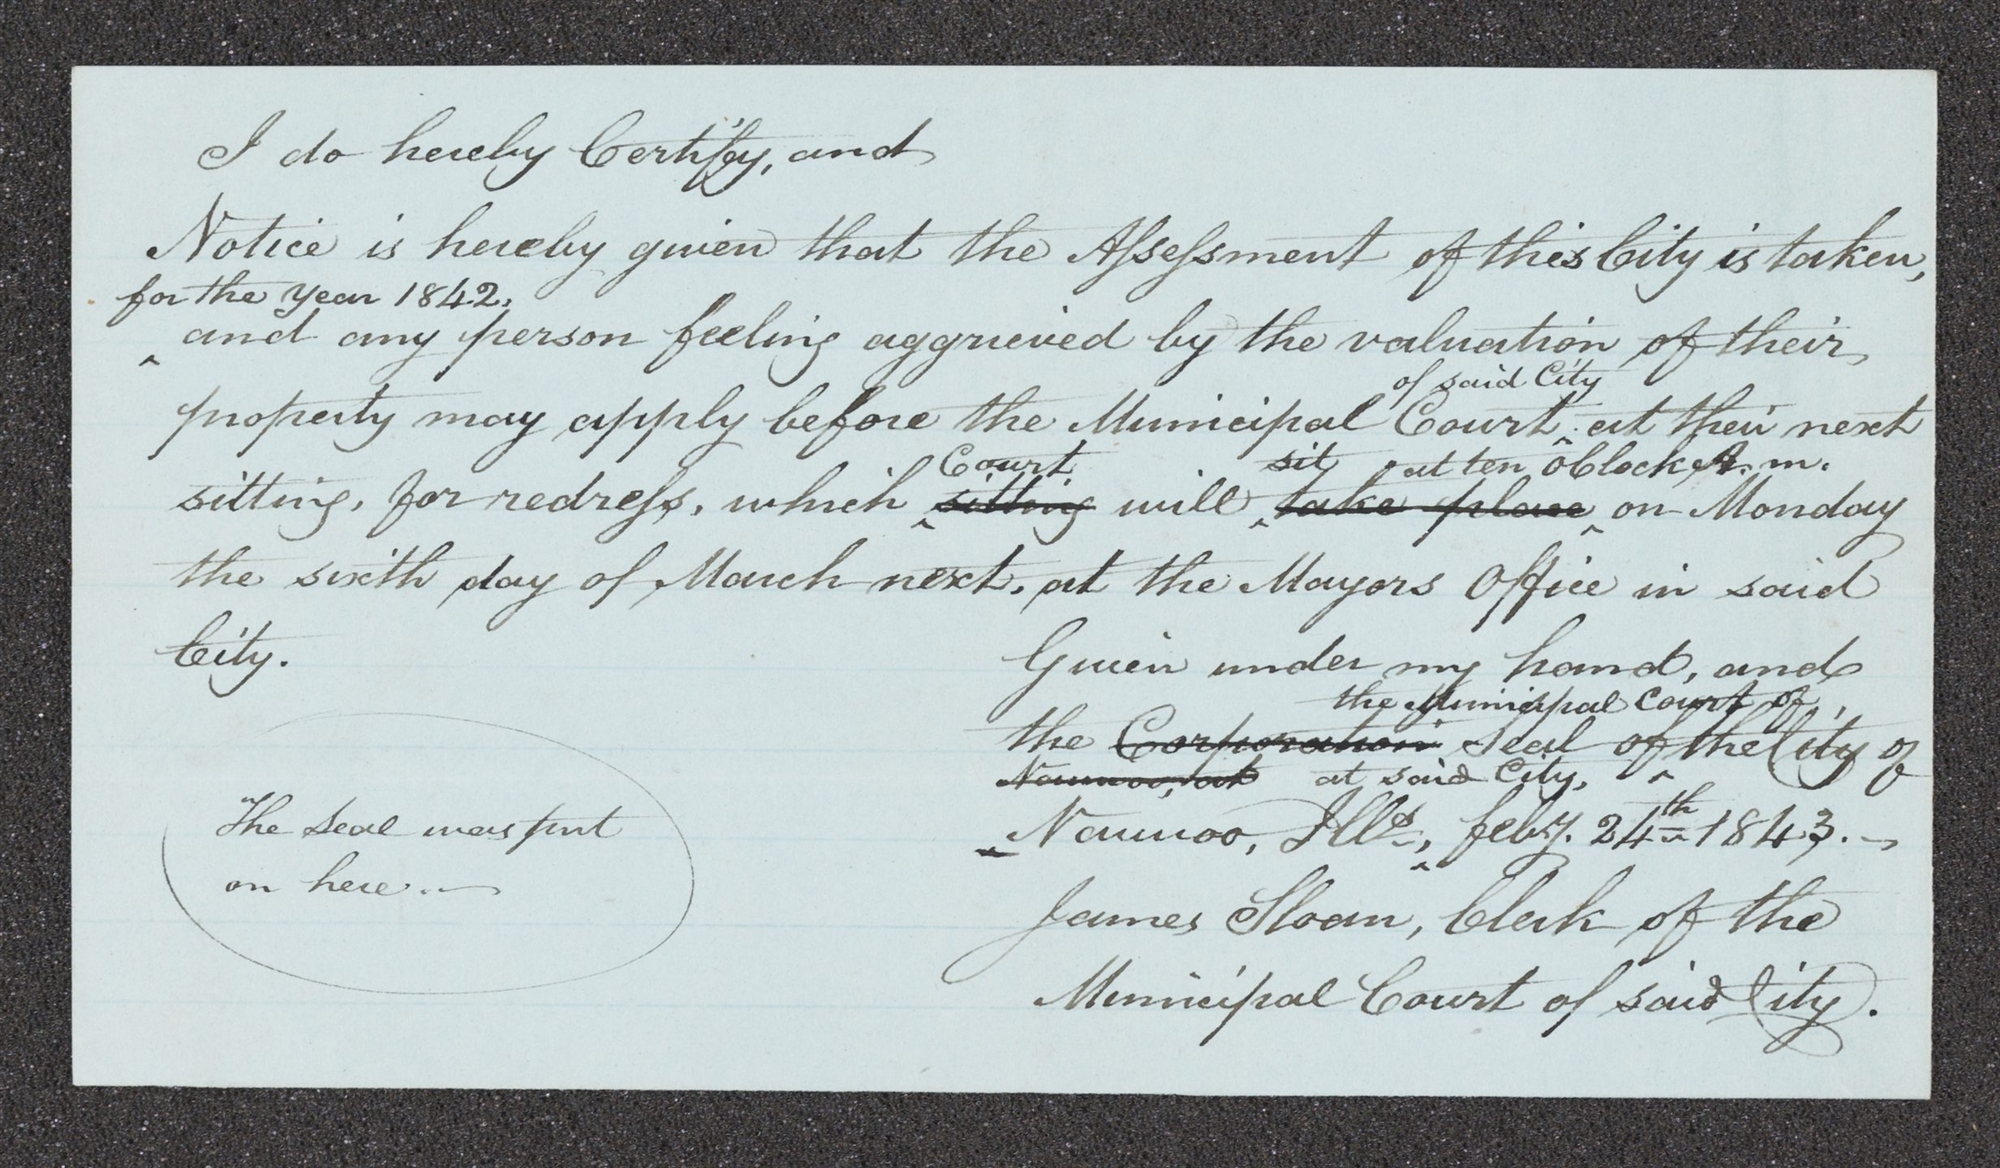 I do hereby Certify, and
Notice is hereby given that the Assessment of this City is taken,
for the year 1842,
and any person feeling aggrieved by the valuation of their
of said City
property may apply before the Municipal Court, at their next
Court sit at ten oClock A. m.
sitting, for redress, which sitting will take place on Monday
the sixth day of March next, at the Mayors Office in said
City.
Given under my hand, and
the Municipal Court of
the Corporation Seal of the City of
Nauvoo, at said City,
Nauvoo, Ills, feby. 24th 1843.
James Sloan, Clerk of the
Municipal Court of said City.
The seal was put
on here.